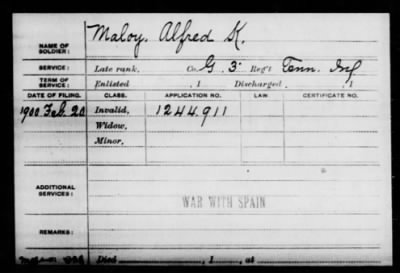 NAME OF SOLDIER: Maloy. Alfred K.
SERVICE: Late rank, Co. G. 3. Reg't Tenn. Inf
TERM OF SERVICE: Enlisted , 1 Discharged , 1
DATE OF FILING. CLASS. APPLICATION NO. LAW. CERTIFICATE NO.
1900 Feb. 20 Invalid, 1244.911
Widow,
Minor,
ADDITIONAL SERVICES:
WAR WITH SPAIN
REMARKS:
Died , 1 , at